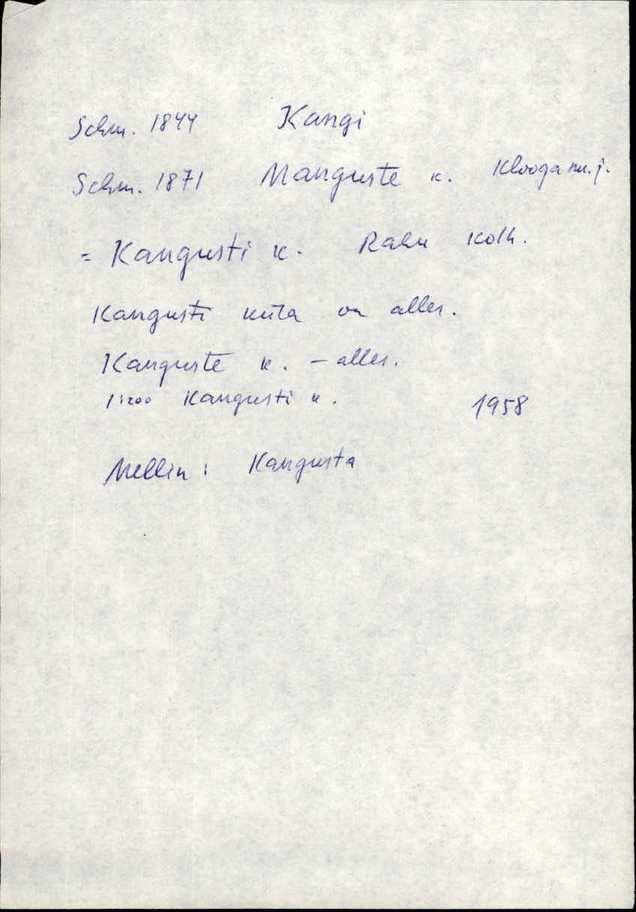 Schm. 1844 Kangi
Schm. 1871 Manguste k. Klooga m.j.
= Kangusti k. Rahu kolh.
Kangusti küla on alles.
Kanguste k. – alles.
1:200 Kangusti k. 1958
Mellin: Kangusta